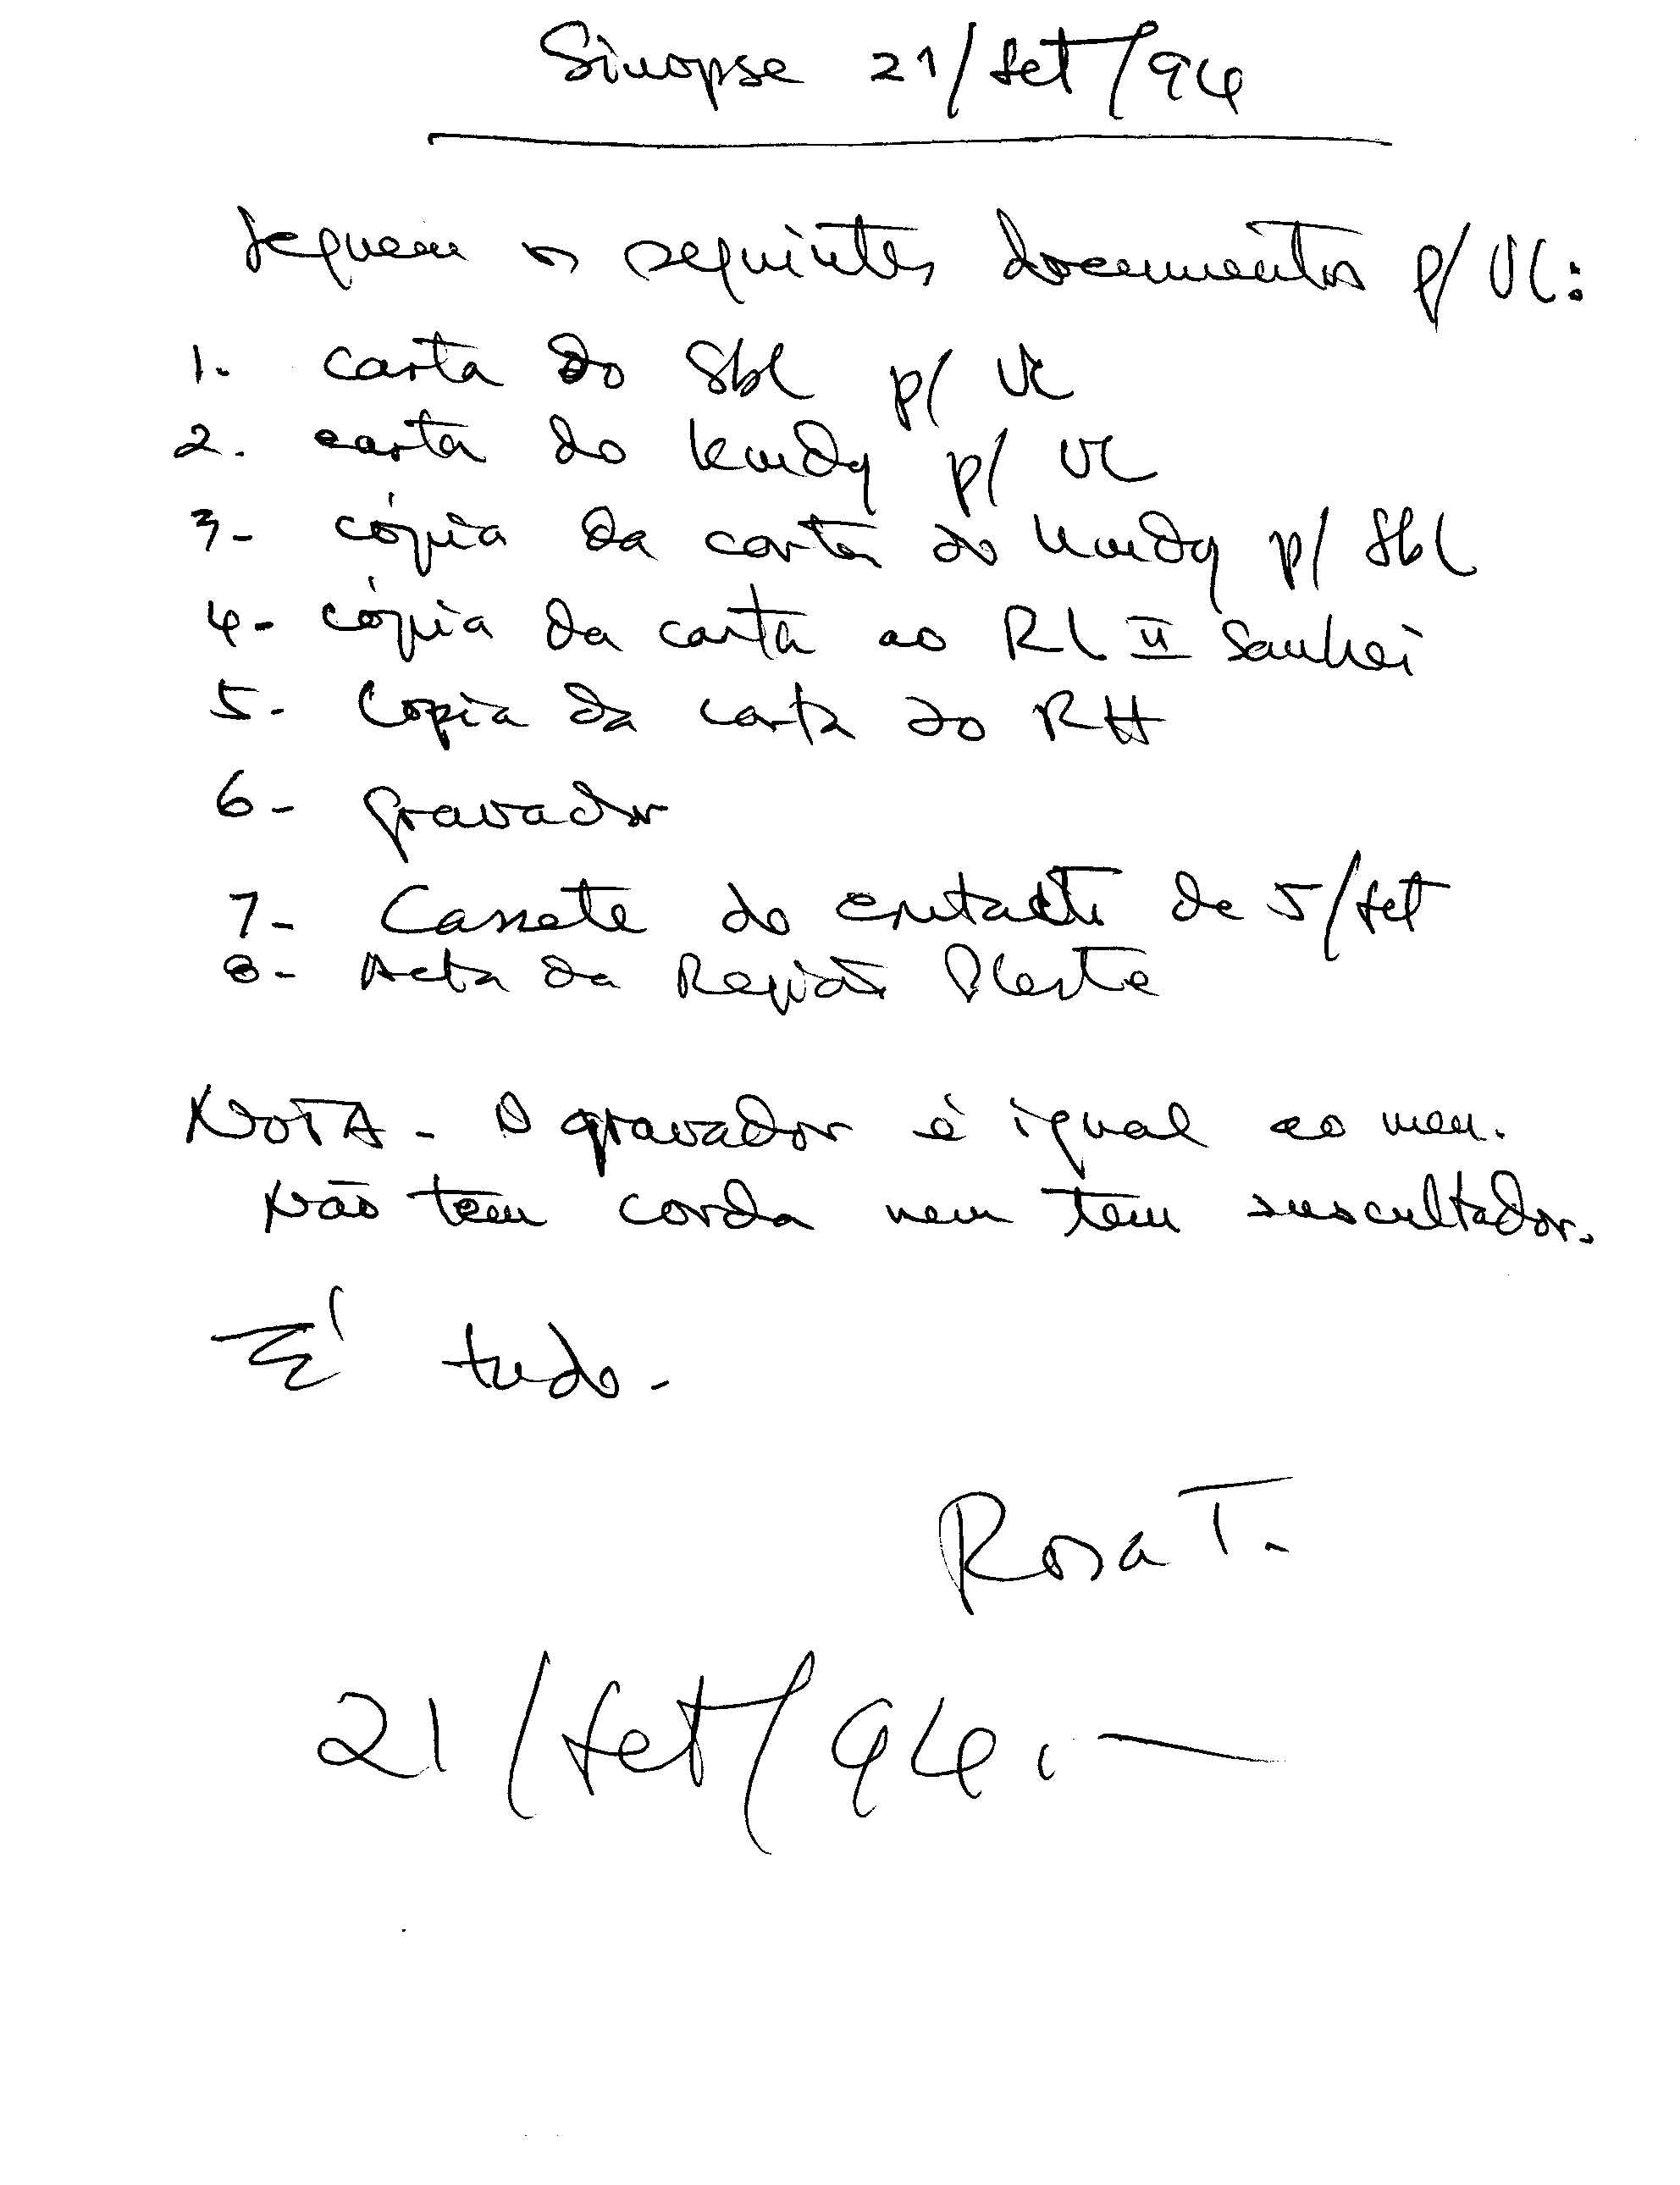 Sinopse 21/Set/94
Seguem os seguintes documentos p/ VC:
1. carta do Sbl p/ VC
2. carta do Kundy p/ VC
3- cópia da carta do Kundy p/ Sbl
4- cópia da carta ao RL II Sanhei
5- Cópia da carta do RH
6- gravador
7- Cassete do contacto de 5/Set
8- Acta da Região Oeste
NOTA - O gravador é igual ao meu.
Não tem corda nem tem auscultador.
É tudo.
Rosa T.
21/Set/94.